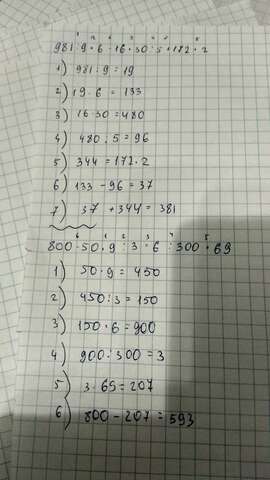 981:9·6-16·30:5+172·2
1) 981:9=19
2) 19·6=133
3) 16·30=480
4) 480:5=96
5) 344=172·2
6) 133-96=37
7) 37+344=381
800-50·9:3·6:300·69
1) 50·9=450
2) 450:3=150
3) 150·6=900
4) 900:300=3
5) 3·69=207
6) 800-207=593